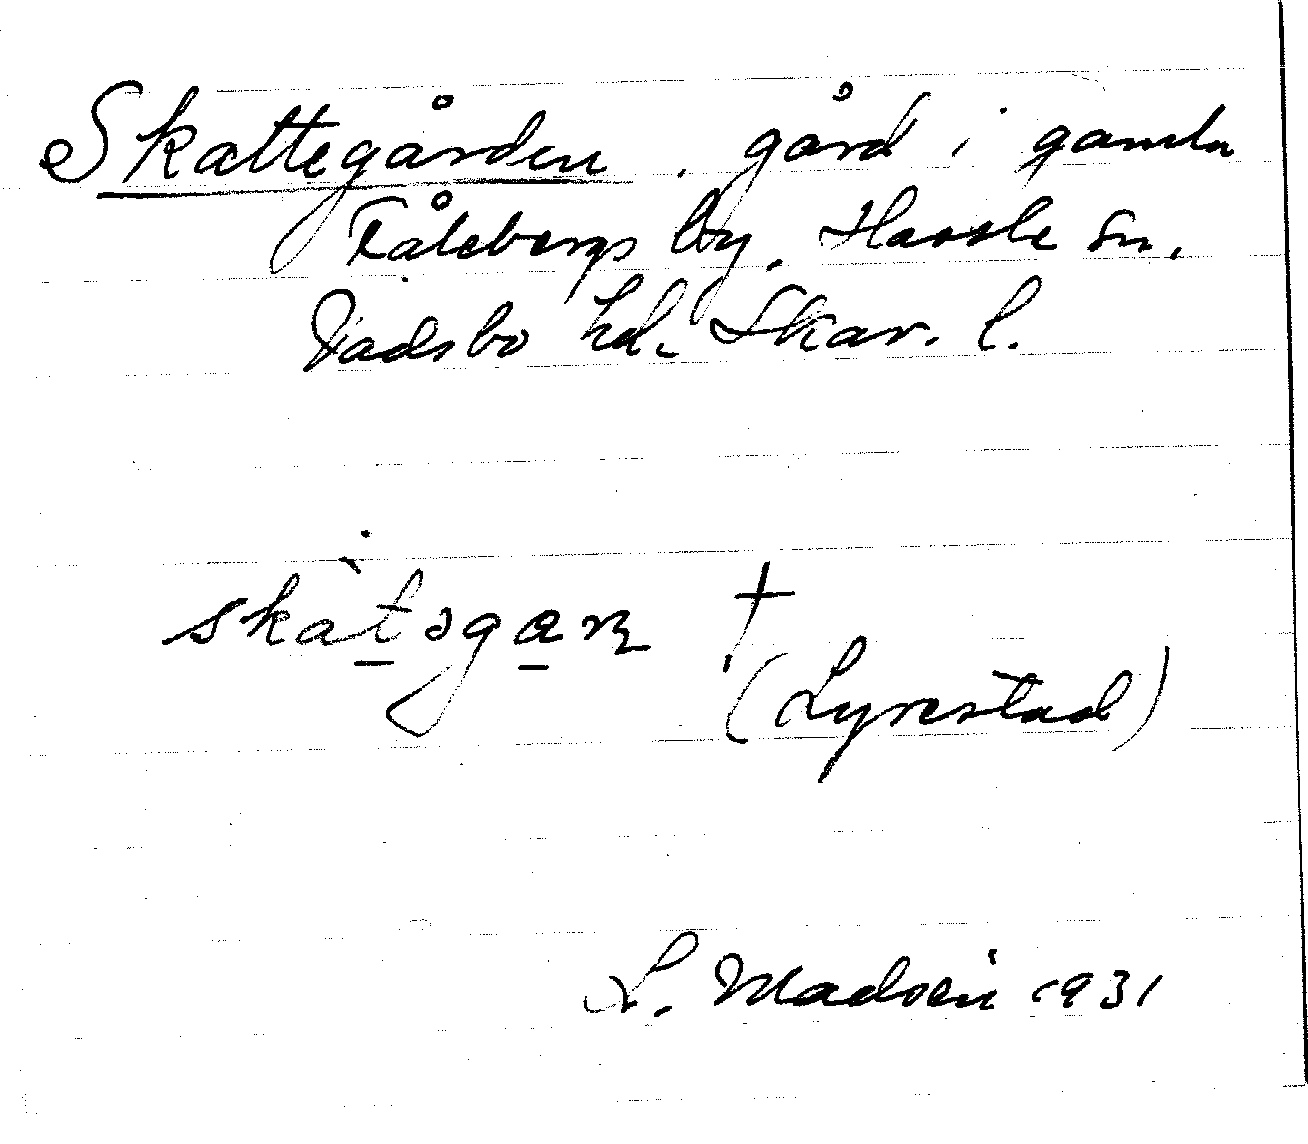 Skattegården, gård i gamla
Fålebergs by, Hassle sn.
Vadsbo hd. Skar. l.
skàt̠əgan
(Lyrestad)
L. Madsén 1931